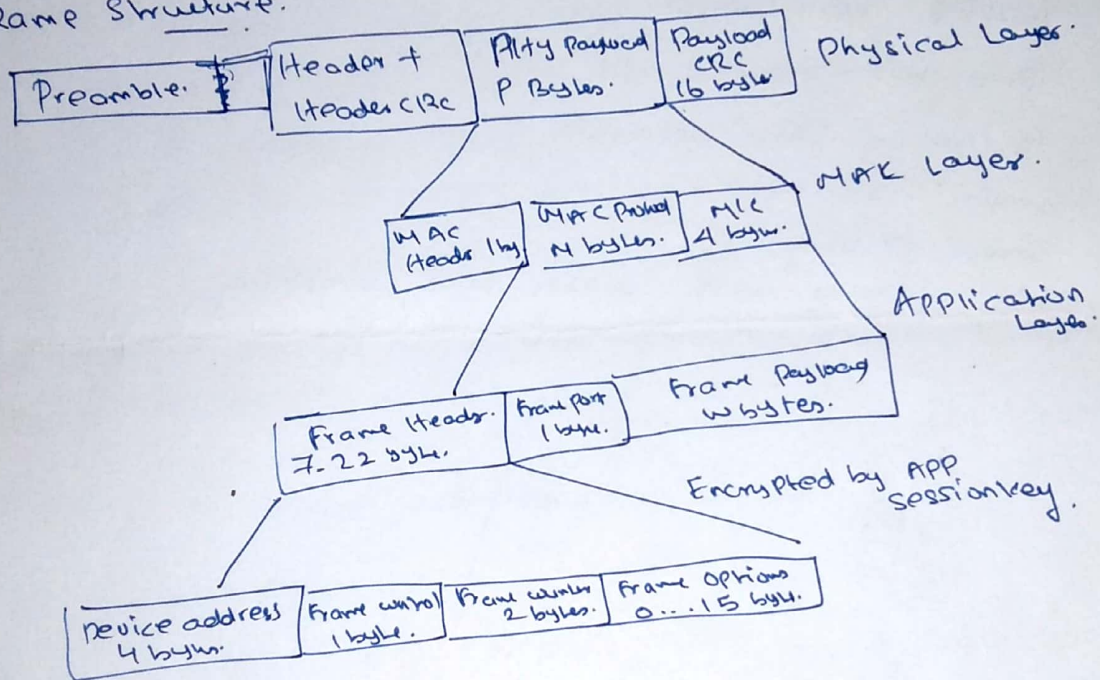 Rame Structure.
Preamble.
Header +
Header CRC
Phy Payload
P Bytes.
Payload
CRC
16 byte
Physical Layer.
MAK Layer.
MAC
Header 1by
MAC
N bytes.
MIC
4 byte.
Application
Layer.
Frame Header.
7-22 byte.
Frame port
1 byte.
Frame Payload
w bytes.
Encrypted by APP
sessionkey.
Device address
4 bytes.
Frame control
1 byte.
Frame counter
2 bytes.
Frame options
0...15 byte.